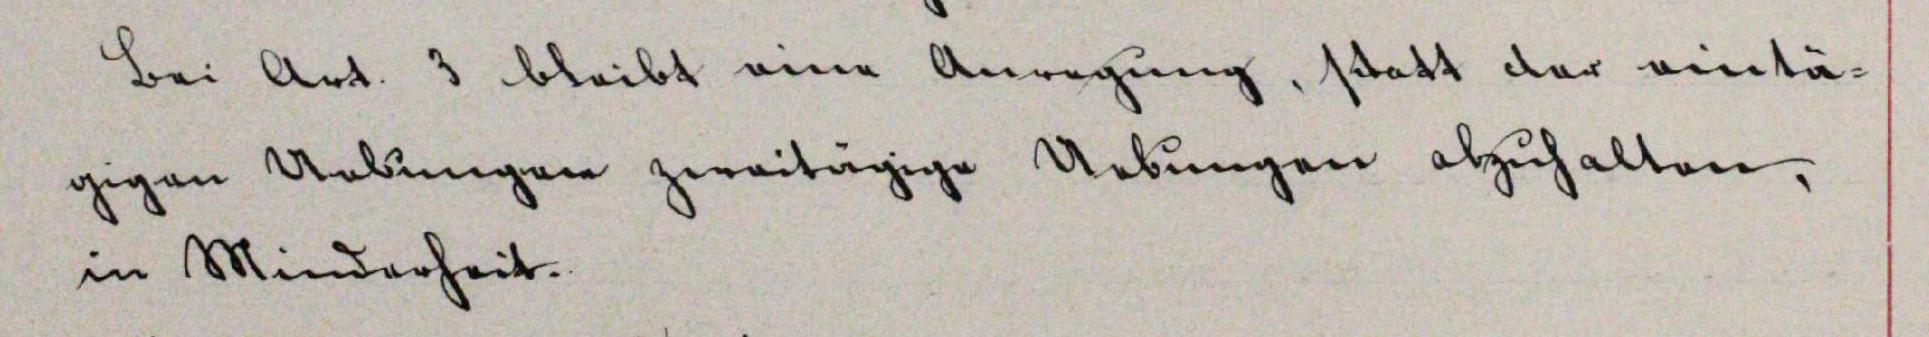 Bei Art. 3 bleibt eine Anregung, statt der eintä-
gigen Uebungen zweitägige Uebungen abzuhalten,
in Minderheit.